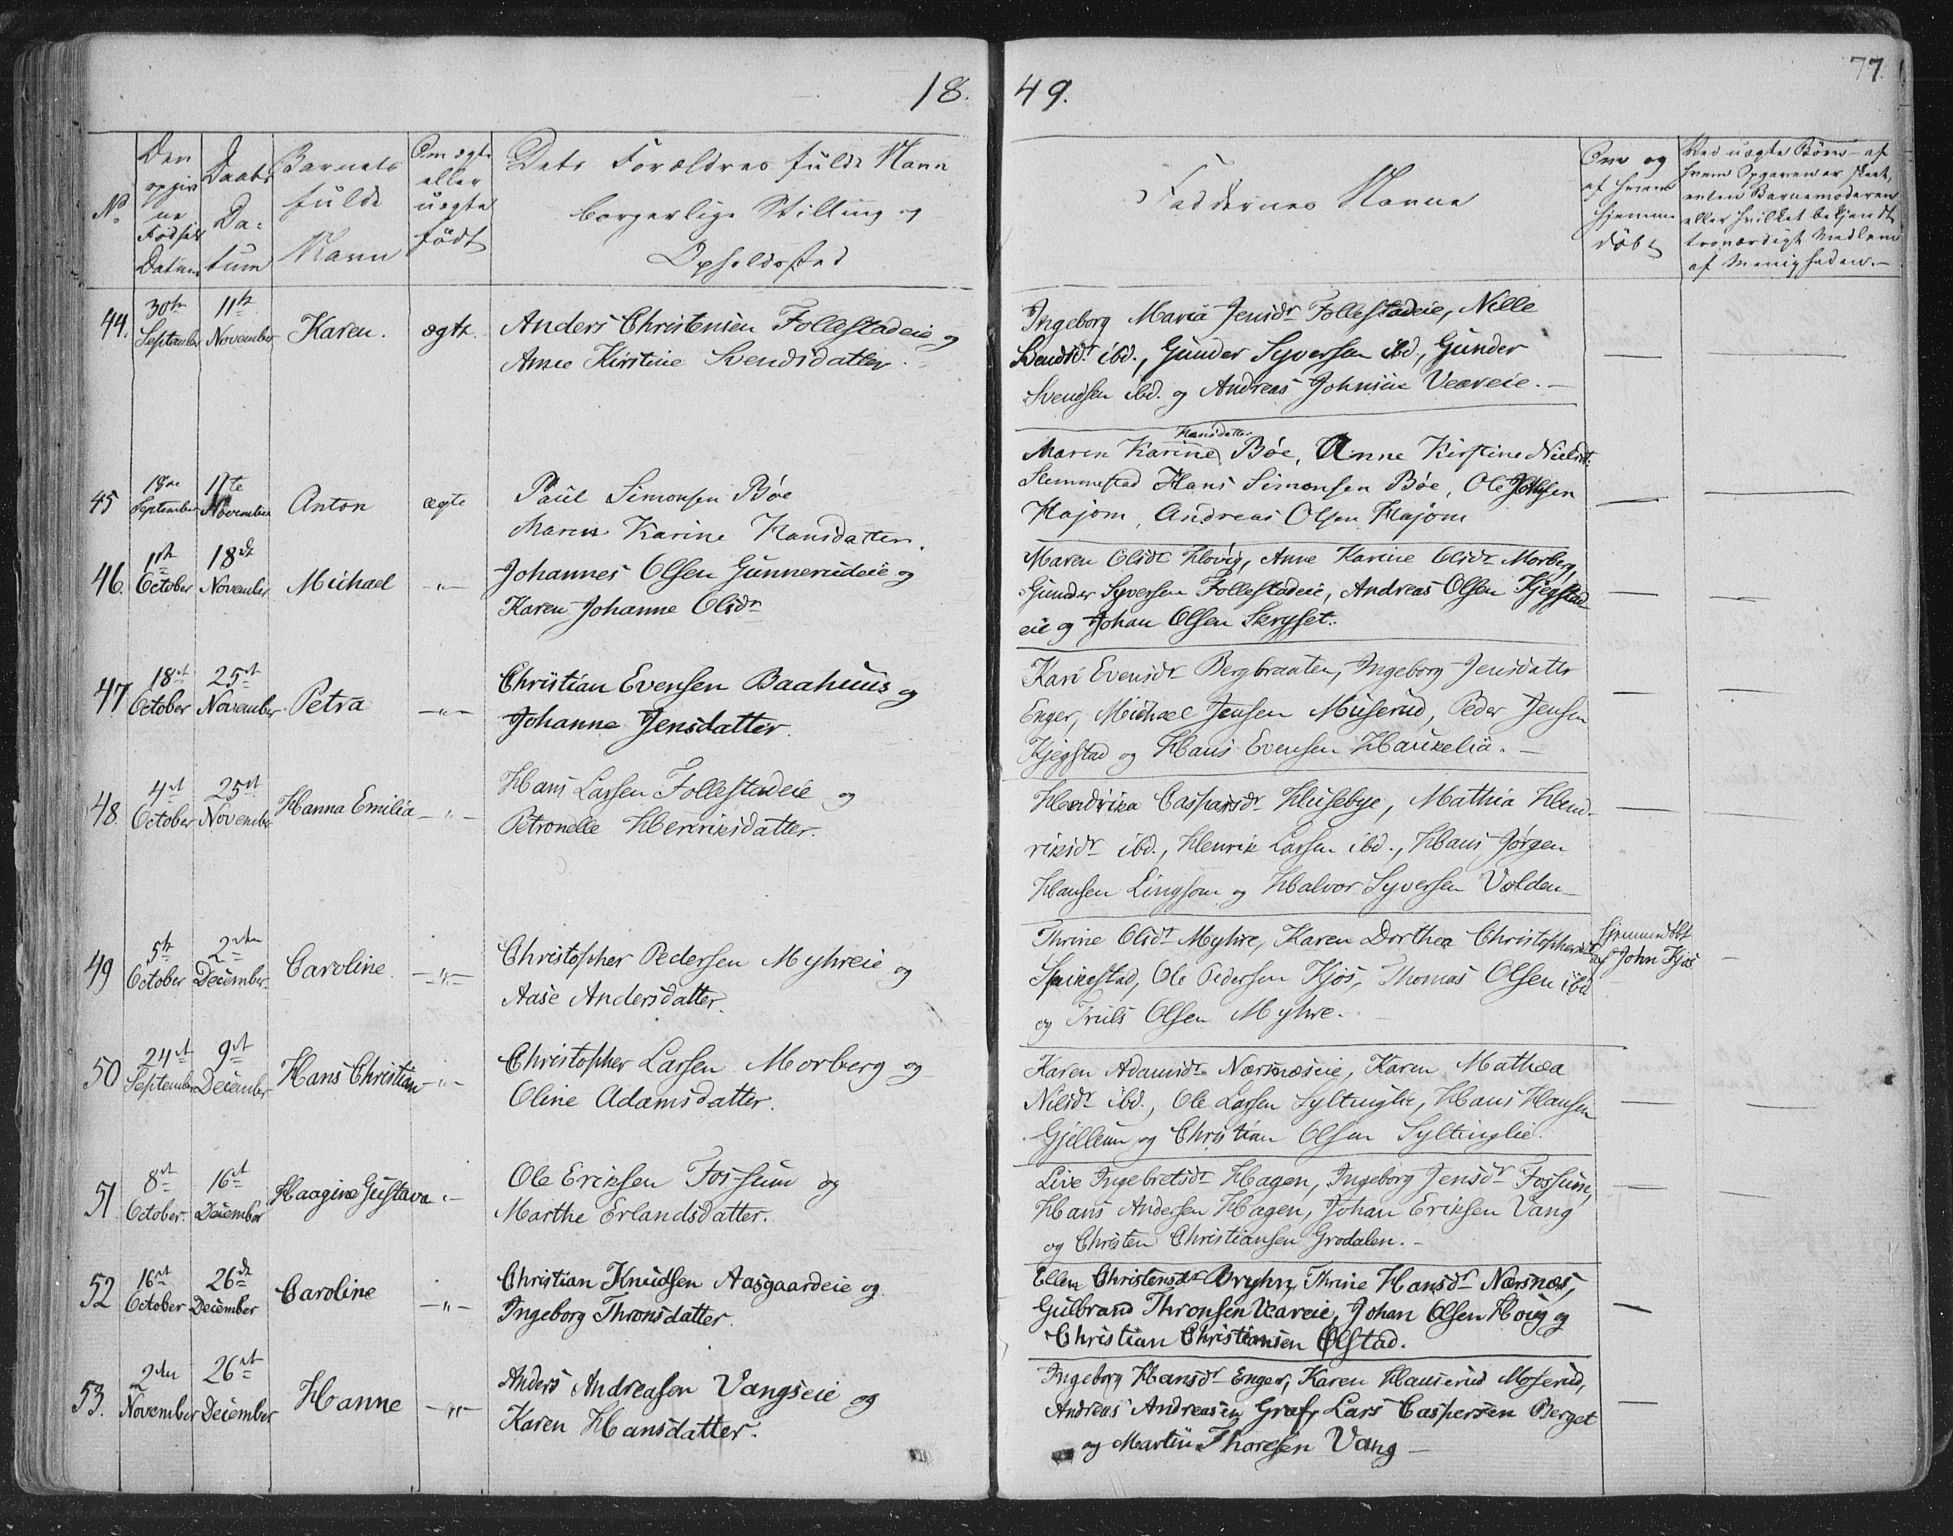 18.
49.
77.
No
Den opgivne Fødsels Datum
Daabs Datum
Barnets fulde Navn
Om ægte eller uægte født
Dets Forældres fulde Navn borgerlige Stilling og Opholdssted
Faddernes Navne
Om og af hvem hjemmedøbt
Ved uægte Børn af hvem Opgaven er skeet, enten Barnemoderen eller hvilket bekjendt troværdigt Medlem af Menigheden.
44. 30te September 11te November Karen. ægte.
Anders Christensen Follestadeie og
Anne Kirstine Svendsdatter.
Ingeborg Maria Jensdr Follestadeie, Nille
Svendsdr ibd., Gunder Syversen ibd., Gunder
Svendsen ibd. og Andreas Johnsen Veaveie.
45 September 11te November Anton ægte
Paul Simonsen Bøe
Maren Karine Hansdatter.
Maren Karine Hansdatter Bøe, Anne Kirstine Nielsdt.
Slemmestad Hans Simonsen Bøe, Ole
Hajom, Andreas Olsen Hajom
46. October 18de November Michael -"-
Johannes Olsen Gunnerudeie og
Karen Johanne Olsdr
Maren Olsdr Hovig, Anne Karine Olsdr Morberg,
Gunder Syversen Follestadeie, Andreas Olsen Kjegstad
eie og Johan Olsen Skryset.
47 18de October 25de November Petra -"-
Christian Evensen Baahuus og
Johanne Jensdatter.
Kari Evensdr Bergbraaten, Ingeborg Jensdatter
Enger, Michael Jensen Muserud, Peder Jensen
Kjegstad og Hans Evensen Haukelia.
48. 4de October 25de November Hanna Emilia -"-
Hans Larsen Follestadeie og
Petronelle Henriksdatter.
Hendrika Caspersdr Husebye, Mathia Hend-
riksdr ibd., Henrik Larsen ibd., Hans Jørgen
Hansen Lingsom og Halvor Syversen Volden
49 5te October 2den December Caroline -"-
Christopher Pedersen Myhreie og
Aase Andersdatter.
Thrine Olsdr Myhre, Karen Dorthea Christophersdr
Spikestad, Ole Pedersen Kjos, Thomas Olsen ibd
og Truls Olsen Myhre.
hjemmedøbt
af John Kjos
50 24de September 9de December Hans Christian -"-
Christopher Larsen Morberg og
Oline Adamsdatter.
Karen Adamsdr Nærsnæseie, Karen Mathea
Nilsdr ibd., Ole Larsen Syltinglie, Hans Hansen
Gjellum og Christian Olsen Syltinglie.
51 8de October. 16de December Haagine Gustava
Ole Eriksen Fossum og
Marthe Erlandsdatter.
Live Ingebretsdr Hagen, Ingeborg Jensdr Fossum,
Hans Andersen Hagen, Johan Eriksen Vang
og Christen Christiansen Grodalen.
52 16de October 26de December Caroline -"-
Christian Knudsen Aasgaardeie og
Ingeborg Thronsdatter.
Ellen Christensdr Bryhn, Thrine Hansdr Nærsnæs,
Gulbrand Thronsen Veaveie, Johan Olsen Hovig og
Christian Christiansen Ølstad.
53. 2den November 26de December Hanne -"-
Anders Andreasen Vangseie og
Karen Hansdatter.
Ingeborg Hansdr Enger, Karen Moserud,
Andreas Andreasen Graf, Lars Caspersen Berget
og Martin Thoresen Vang